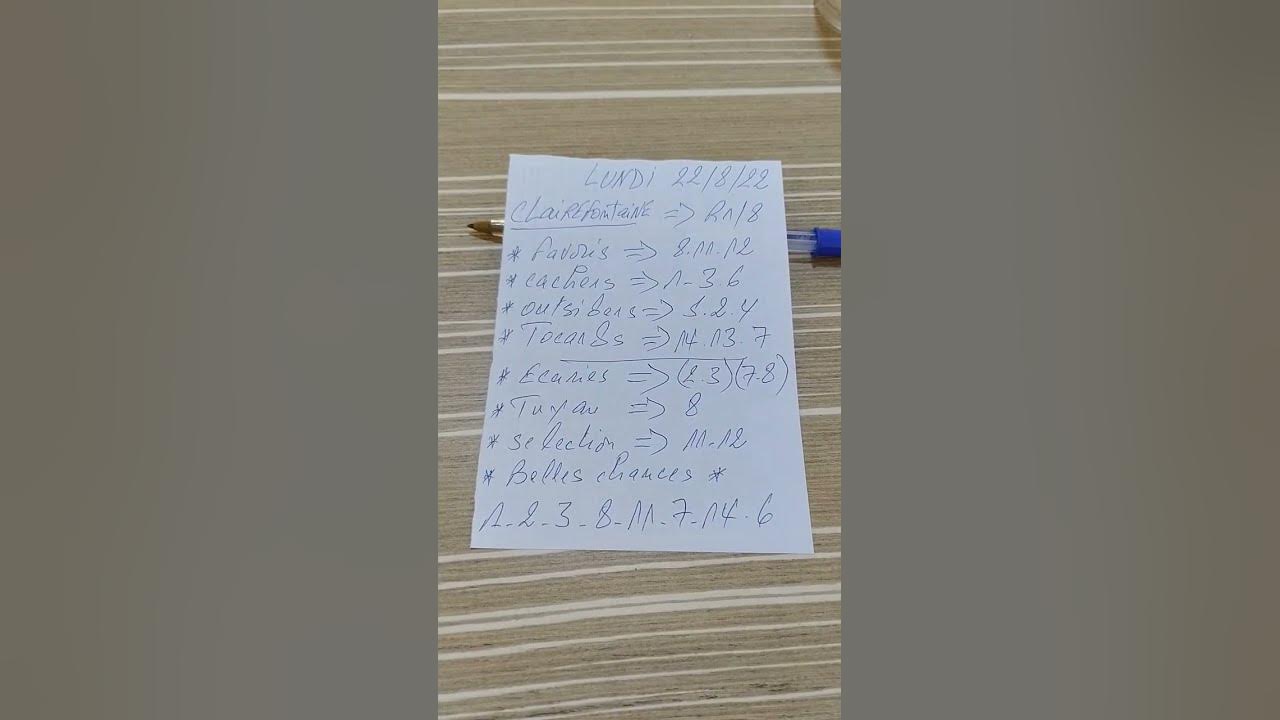 LUNDI 22/8/22
CLAIREFONTAINE => R1/8
* favoris => 8.11.12
* cachers => 1-3.6
* outsiders => 5.2.4
* Tocards => 14.13.7
* Ecuries => (2.3)(7-8)
* Tuyau => 8
* selection => 11-12
* Belles chances *
1-2-3-8-11-7-14.6